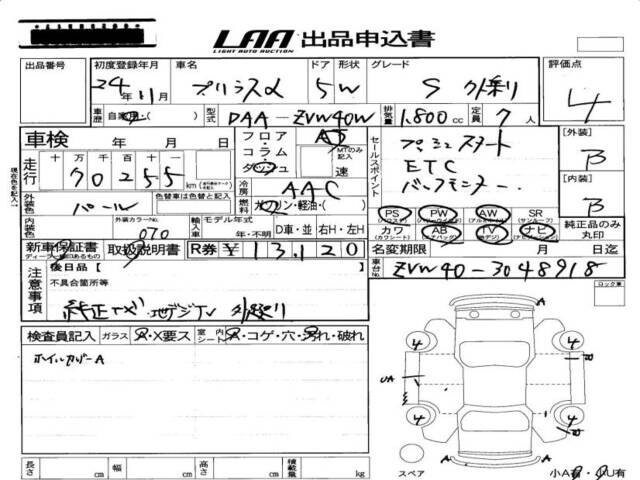 LAA 出品申込書
LIGHT AUTO AUCTION
出品番号 初度登録年月 車名 ドア 形状 グレード 評価点
24年11月 プリウスα 5 W S 4
車歴 自家用・( ) 型式 DAA-ZVW40W 排気量 1,800cc 定員 7人
車検 年 月 日 フロア・コラム・ダッシュ AT MTのみ記入 速 セールスポイント プッシュスタート [外装] B
走行 十万千百十一 70255 km ETC
冷房 AAC バックモニター [内装] B
外装色 パール 色替車は色替と記入 燃料 ガソリン・軽油・( )
内装色 外装カラーNo. 070 輸入車 モデル年式 年・不明 D車・並 右H・左H
PS PW AW SR 純正品のみ丸印
カワ AB TV ナビ
新車保証書 取扱説明書 R券 ¥13,120 名変期限 月 日迄
車台No. ZVW40-3048918
注意事項 後日品[ ]
不具合箇所等
ロック車
検査員記入 ガラス A・X要ス 室内シート A・コゲ・穴・汚れ・破れ
ホイルカバーA
A
4 4
UA
4 4
A
長さ cm 幅 cm 高さ cm 積載量 kg スペア